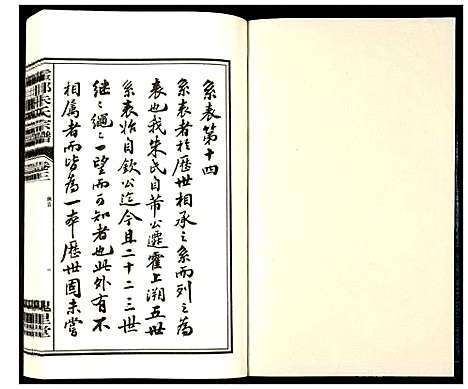 系表第十四
系表者於歷世相承之系而列之為
表也我朱氏自芾公遷霍上溯五世
系表始自欽公迄今且二十二三世
繼繼繩繩一望而可知者也此外有不
相屬者而皆為一本歷世固未嘗
霍邱朱氏宗譜
卷三